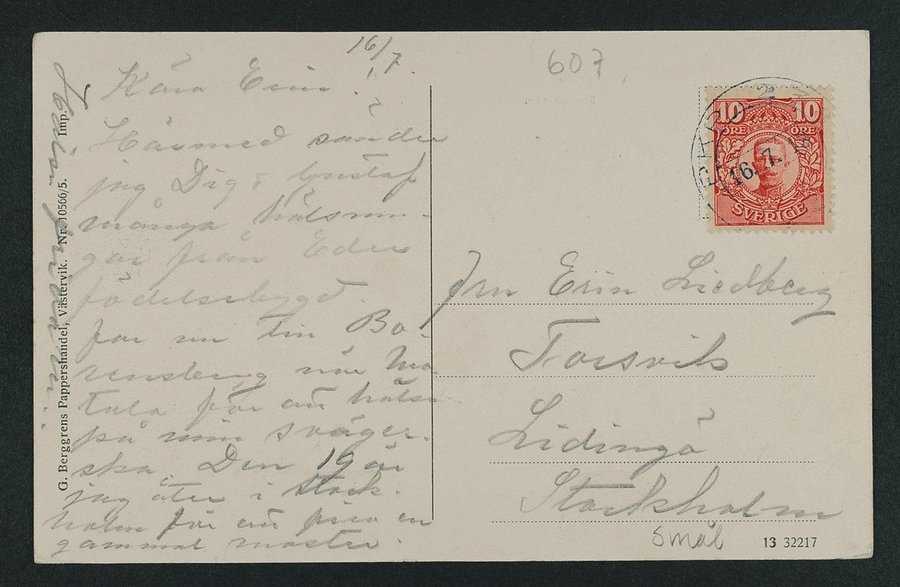 16/7
607
Kära Erin!
Härmed sänder
jag Dig & Gustaf
många hälsnin-
gar från Eder
födelsebygd.
far nu till Bo-
rensberg när Mo
tala för att hälsa
på min sväger-
ska. Den 19 är
jag åter i Stock-
holm för att fira en
gammal moster.
G. Berggrens Pappershandel, Västervik. Nr. 10566/5. Imp.
10 10
ÖRE ÖRE
SVERIGE
16. 7.
Fru Erin Liedberg
Torsvik
Lidingö
Stockholm
Smål
13 32217